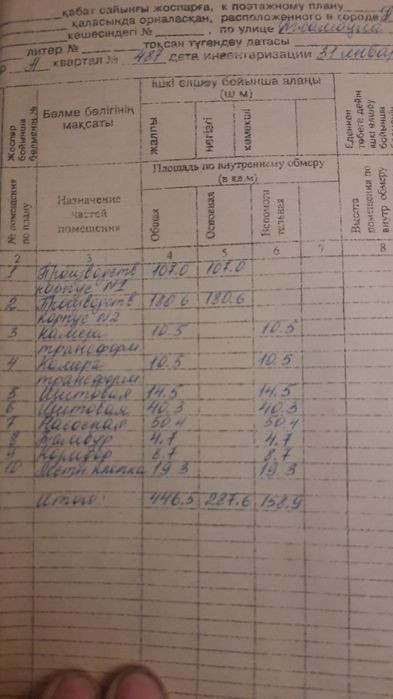 қабат сайынғы жоспарға, к поэтажному плану
қаласында орналасқан, расположенного в городе
кешесіндегі № , по улице
литер № тоқсан түгендеу датасы
А квартал № 487 дата инвентаризации 31 январ
Жоспар бойынша бөлменің №
Бөлме бөлігінің мақсаты
ішкі елшеу бойынша алаңы
(ш м)
жалпы
негізгі
көмекші
Еденнен төбеге дейін ішкі елшеу бойынша
№ помещения по плану
Назначение частей помещения
Площадь по внутреннему обмеру
(в кв.м)
Общая
Основная
Вспомога тельная
Высота помещения по внутр обмеру
2 3 4 5 6 7 8
1 Производств 107.0 107.0
корпус №1
2 Производств 180.6 180.6
корпус №2
3 Камера 10.5 10.5
трансформ
4 Камера 10.5 10.5
трансформ
5 Щитовая 14.5 14.5
6 Щитовая 40.3 40.3
7 Насосная 50.4 50.4
8 Тамбур 4.7 4.7
9 Коридор 8.7 8.7
10 Лестн клетка 19.3 19.3
Итого: 446.5 287.6 158.9